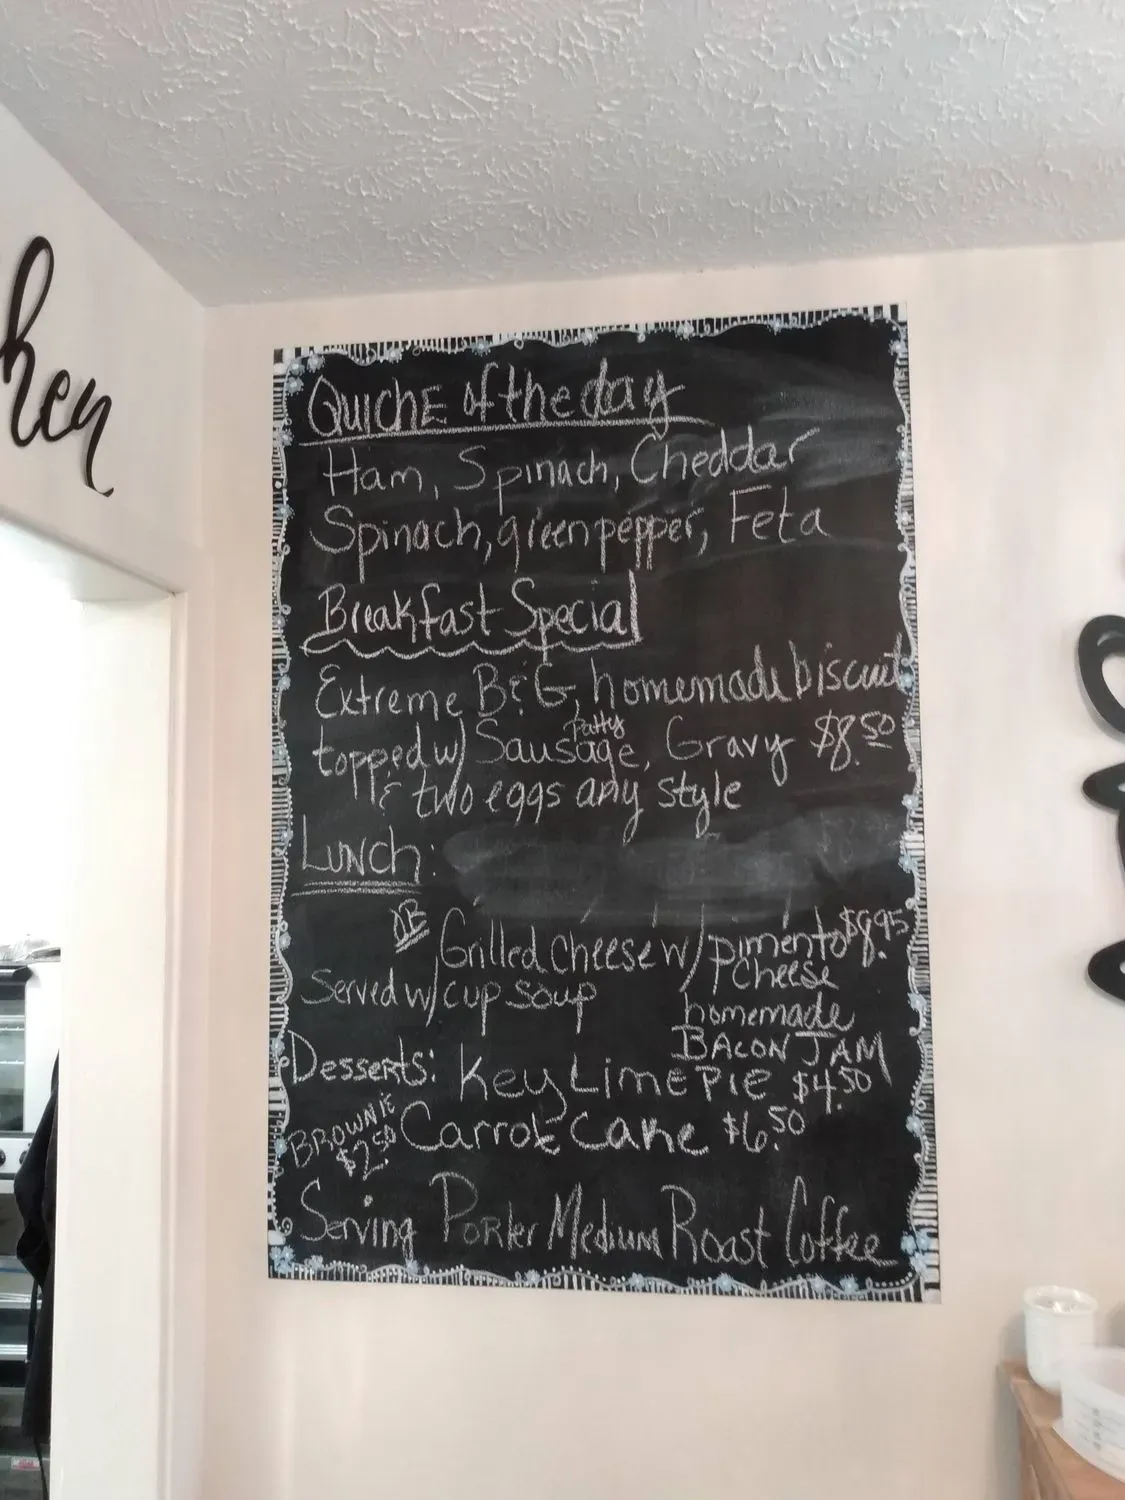 hen
QUICHE of the day
Ham, Spinach, Cheddar
Spinach, green pepper, Feta
Breakfast Special
Extreme B&G, homemade biscuit
topped w/ Sausage Patty, Gravy $8.50
& two eggs any style
LUNCH:
Grilled cheese w/ pimento $8.95
cheese
Served w/ cup soup
homemade
BACON JAM
Desserts: Key Lime PIE $4.50
BROWNIE
$2.50
Carrot Cake $6.50
Serving Porter Medium Roast Coffee